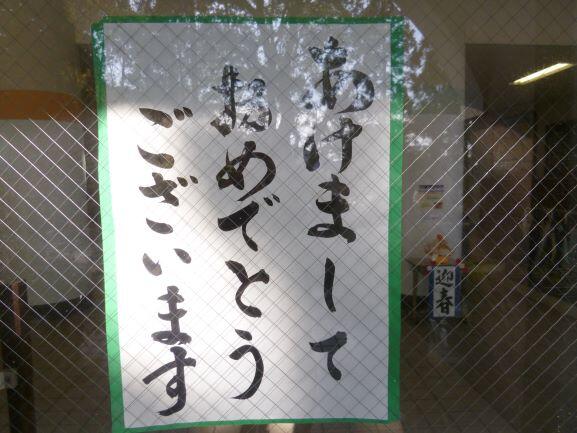 あけまして
おめでとう
ございます
迎春